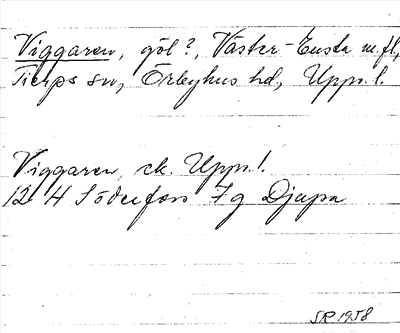 Viggaren, göl?, Väster-Ensta m.fl,
Tierps sn, Örbyhus hd, Upps. l.
Viggaren, ek. Upps. l.
12 H Söderfors 7 g Djupa
SR 1958